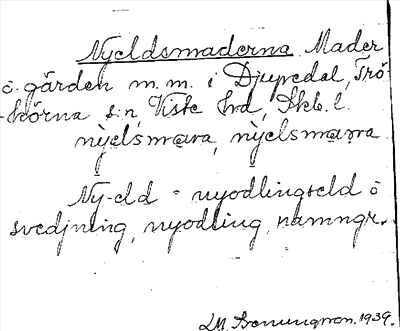 Nyeldsmaderna Mader
o. gården m.m. i Djupedal, Trö-
körna s:n, Viste hrd, Skb. l.
nýelsmara, nỳelsmaṛra
Ny-eld = nyodlingseld o
svedjning, nyodling, namngr.
1939.